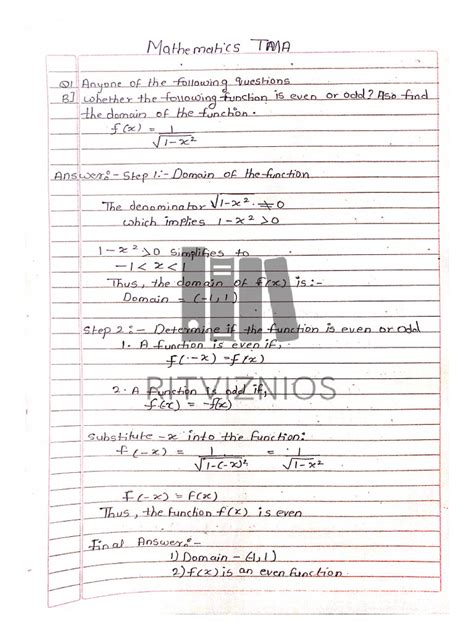 Mathematics TMA
Q1 Anyone of the following questions
B] Whether the following function is even or odd? Also find
the domain of the function.
f(x) = 1/√1-x²
Answer:- Step 1:- Domain of the function
The denominator √1-x² ≠ 0
which implies 1-x² > 0
1-x² > 0 simplifies to
-1 < x < 1
Thus, the domain of f(x) is:-
Domain = (-1, 1)
Step 2:- Determine if the function is even or odd
1. A function is even if,
f(-x) = f(x)
2. A function is odd if,
f(-x) = -f(x)
RITVIZNIOS
Substitute -x into the function:
f(-x) = 1/√1-(-x)² = 1/√1-x²
f(-x) = f(x)
Thus, the function f(x) is even
Final Answer:-
1) Domain - (-1, 1)
2) f(x) is an even function